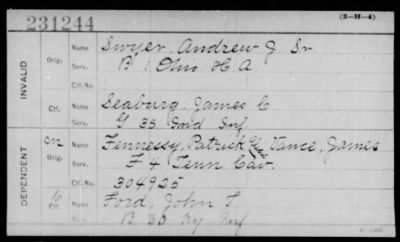 231244 (3-H-4)
INVALID
Orig. Name Dwyer, Andrew J. Sr
Serv. B 1 Ohio H.A.
Ctf. No.
Ctf. Name Seaburg, James C
Serv. G 35 Ind Inf
DEPENDENT
Orig. Name Fennessy, Patrick Vance, James
Serv. F 4 Tenn Cav.
Ctf. No. 304925
Ctf. Name Ford, John T.
B 30 Ky Inf